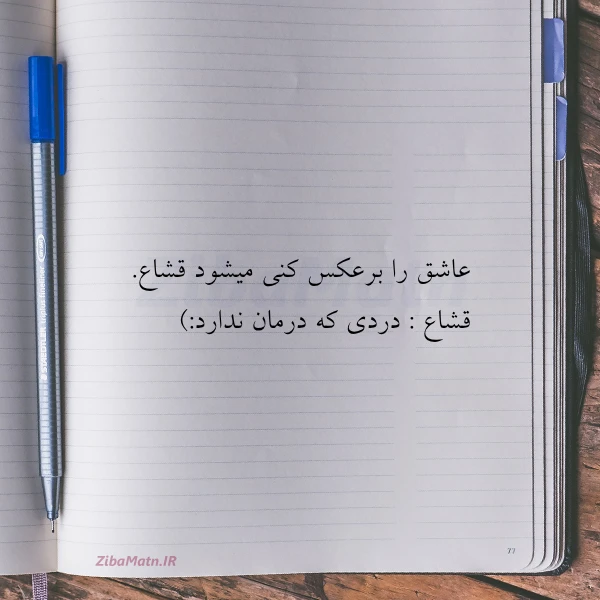 عاشق را برعکس کنی میشود قشاع.
قشاع : دردی که درمان ندارد:)
ZibaMatn.IR
77